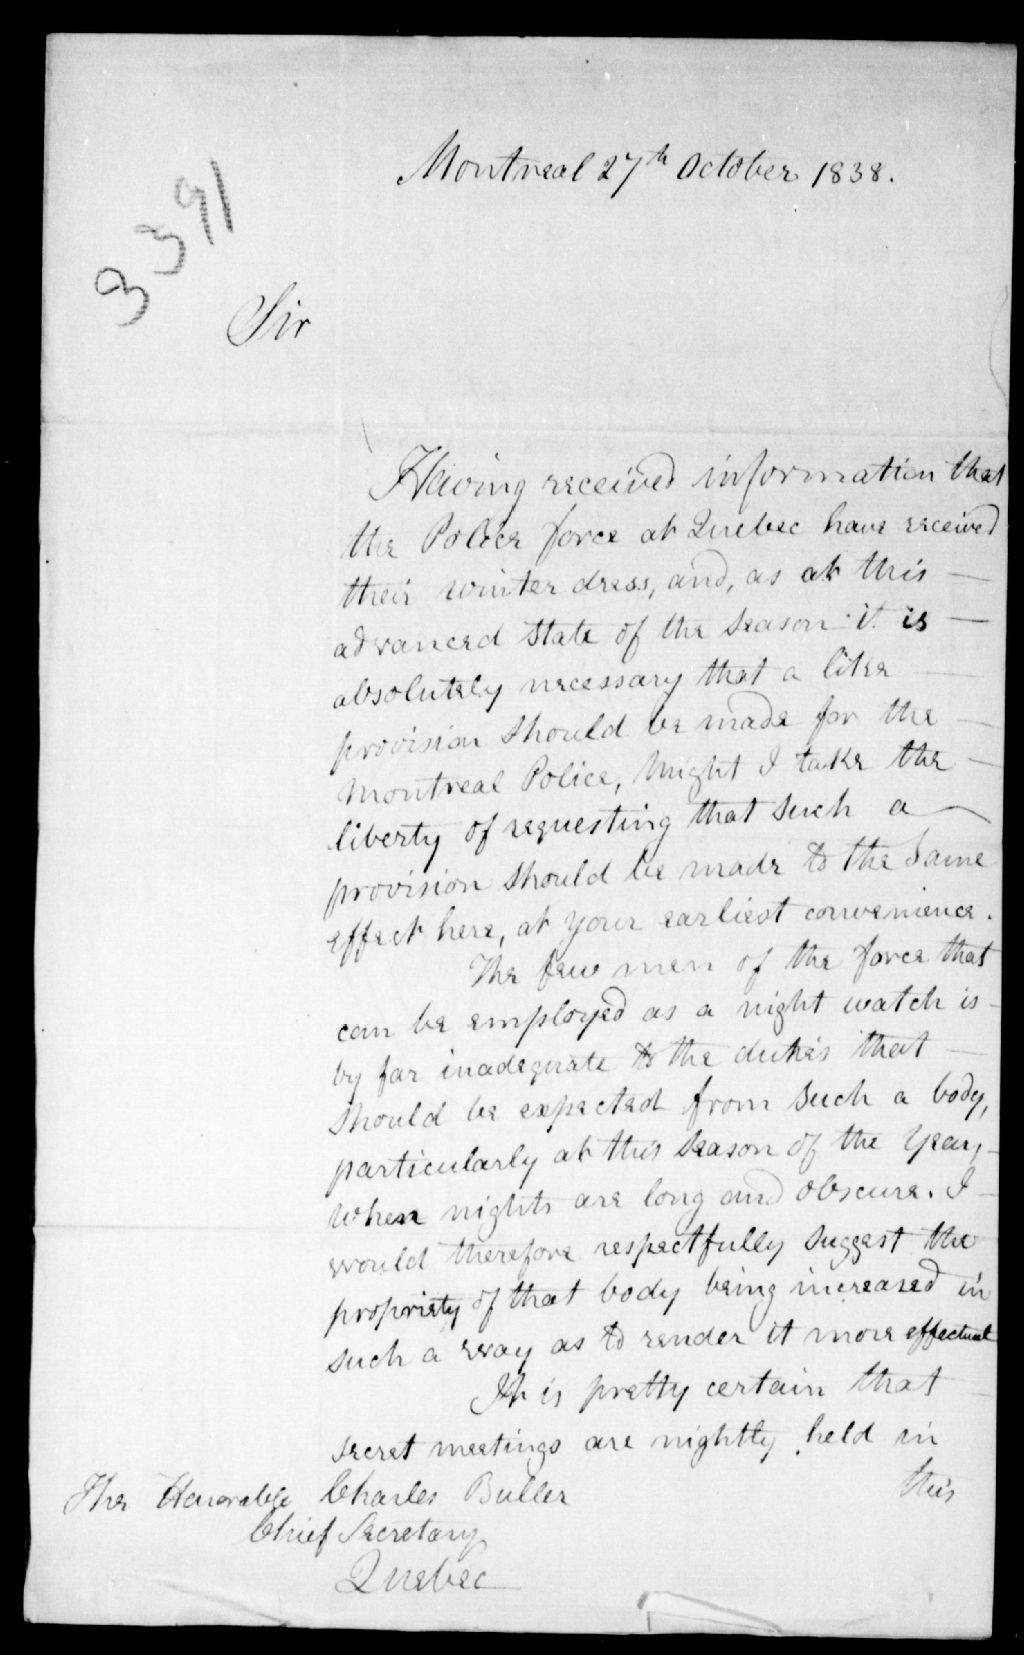 Montreal 27th October 1838.
3391
Sir
Having received information that
the Police force at Quebec have received
their winter dress, and, as at this —
advanced state of the season it is —
absolutely necessary that a like —
provision should be made for the —
Montreal Police, Might I take the —
liberty of requesting that such a —
provision should be made to the same
effect here, at your earliest convenience.
The few men of the force that
can be employed as a night watch is —
by far inadequate to the duties that —
should be expected from such a body,
particularly at this season of the year, —
when nights are long and obscure. I —
would therefore respectfully suggest the
propriety of that body being increased in
such a way as to render it more effectual
It is pretty certain that —
secret meetings are nightly held in
this
The Honorable Charles Buller
Chief Secretary
Quebec